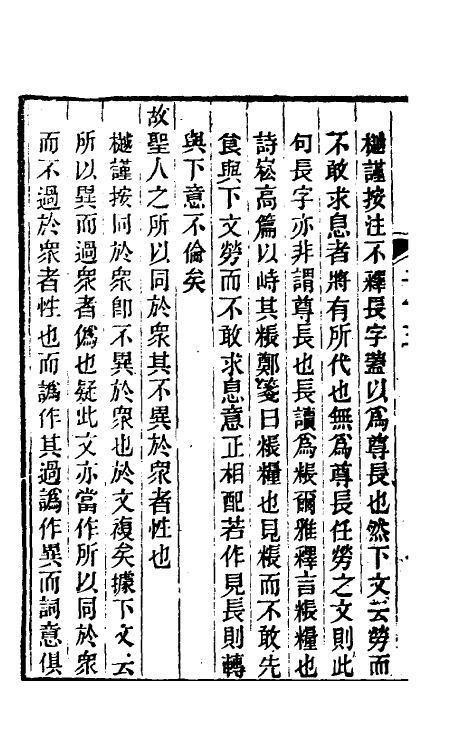 樾謹按注不釋長字蓋以為尊長也然下文云勞而
不敢求息者將有所代也無為尊長任勞之文則此
句長字亦非謂尊長也長讀為粻爾雅釋言粻糧也
詩崧高篇以峙其粻鄭箋曰粻糧也見粻而不敢先
食與下文勞而不敢求息意正相配若作見長則轉
與下意不倫矣
故聖人之所以同於眾其不異於眾者性也
樾謹按同於眾卽不異於眾也於文複矣據下文云
所以異而過眾者偽也疑此文亦當作所以同於眾
而不過於眾者性也而譌作其過譌作異而詞意俱